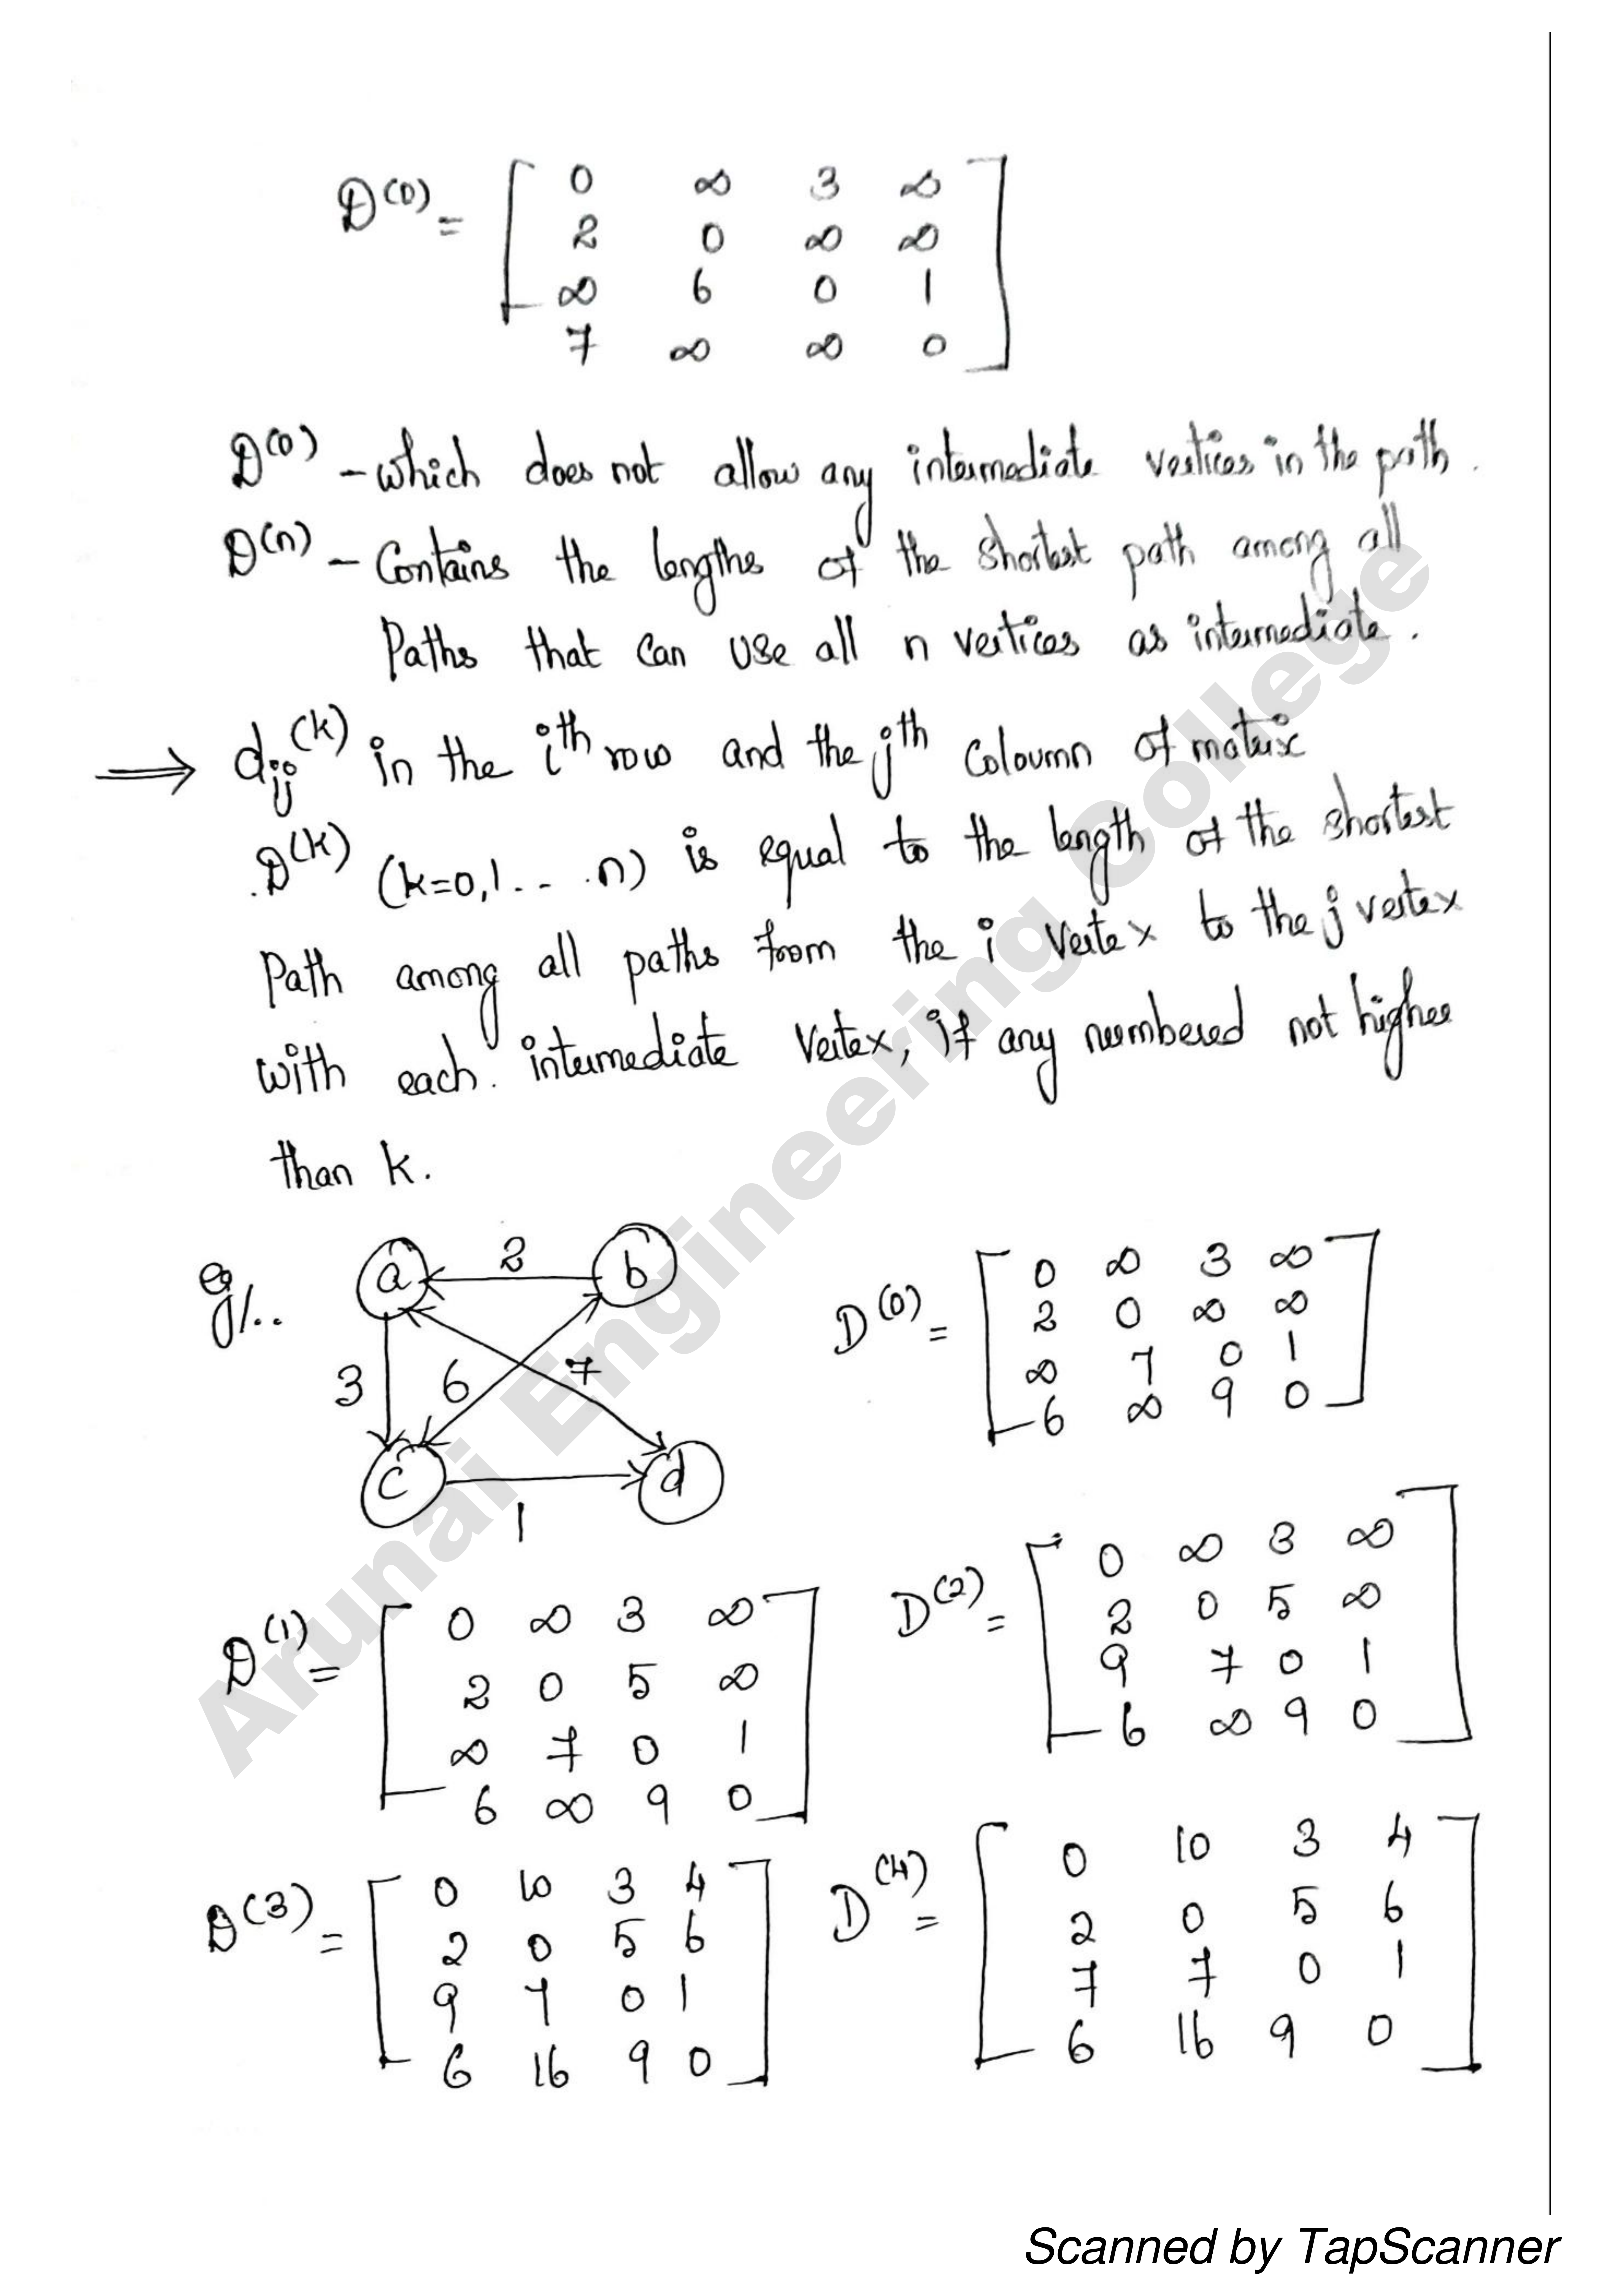 D(0) = [ 0 ∞ 3 ∞ ]
2 0 ∞ ∞
∞ 6 0 1
7 ∞ ∞ 0
D(0) - which does not allow any intermediate vertices in the path.
D(n) - Contains the lengths of the shortest path among all
Paths that can use all n vertices as intermediate.
⇒ dij(k) in the ith row and the jth coloumn of matrix
D(k) (k=0,1... n) is equal to the length of the shortest
Path among all paths from the i vertex to the j vertex
with each intermediate vertex, if any numbered not higher
than k.
eg/..
a 2 b
3 6 7
c 1 d
D(0) = [ 0 ∞ 3 ∞ ]
2 0 ∞ ∞
∞ 7 0 1
6 ∞ 9 0
D(1) = [ 0 ∞ 3 ∞ ]
2 0 5 ∞
∞ 7 0 1
6 ∞ 9 0
D(2) = [ 0 ∞ 3 ∞ ]
2 0 5 ∞
9 7 0 1
6 ∞ 9 0
D(3) = [ 0 10 3 4 ]
2 0 5 6
9 7 0 1
6 16 9 0
D(4) = [ 0 10 3 4 ]
2 0 5 6
7 7 0 1
6 16 9 0
Arunai Engineering College
Scanned by TapScanner